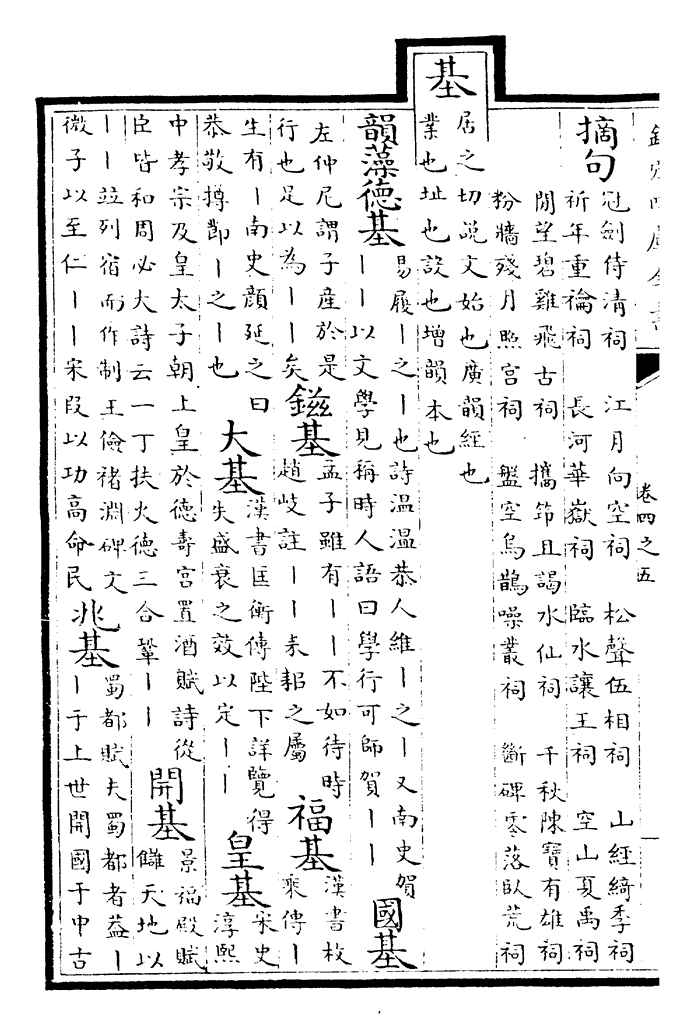 欽定四庫全書
卷四之五
摘句
冠劍侍清祠　江月向空祠　松聲伍相祠　山經綺季祠
祈年重禴祠　長河華嶽祠　臨水讓王祠　空山夏禹祠
閒望碧雞飛古祠　攜筇且謁水仙祠　千秋陳寶有雄祠
粉牆殘月照宫祠　盤空烏鵲噪叢祠　斷碑零落臥荒祠
基
居之切説文始也廣韻經也
業也址也設也增韻本也
韻藻德基
易履｜之｜也詩温温恭人維｜之｜又南史賀
｜｜以文學見稱時人語曰學行可師賀｜｜
國基
左仲尼謂子産於是
行也足以為｜｜矣
鎡基
孟子雖有｜｜不如待時
趙岐註｜｜耒耜之屬
福基
漢書枚
乘傳｜
生有｜南史顔延之曰
恭敬撙節｜之｜也
大基
漢書匡衡傳陛下詳覽得
失盛衰之效以定｜｜
皇基
宋史
淳熙
中孝宗及皇太子朝上皇於德壽宫置酒賦詩從
臣皆和周必大詩云一丁扶火德三合鞏｜｜
開基
景福殿賦
讎天地以
｜｜竝列宿而作制王儉褚淵碑文
微子以至仁｜｜宋段以功高命民
兆基
蜀都賦夫蜀都者葢｜
｜于上世開國于中古